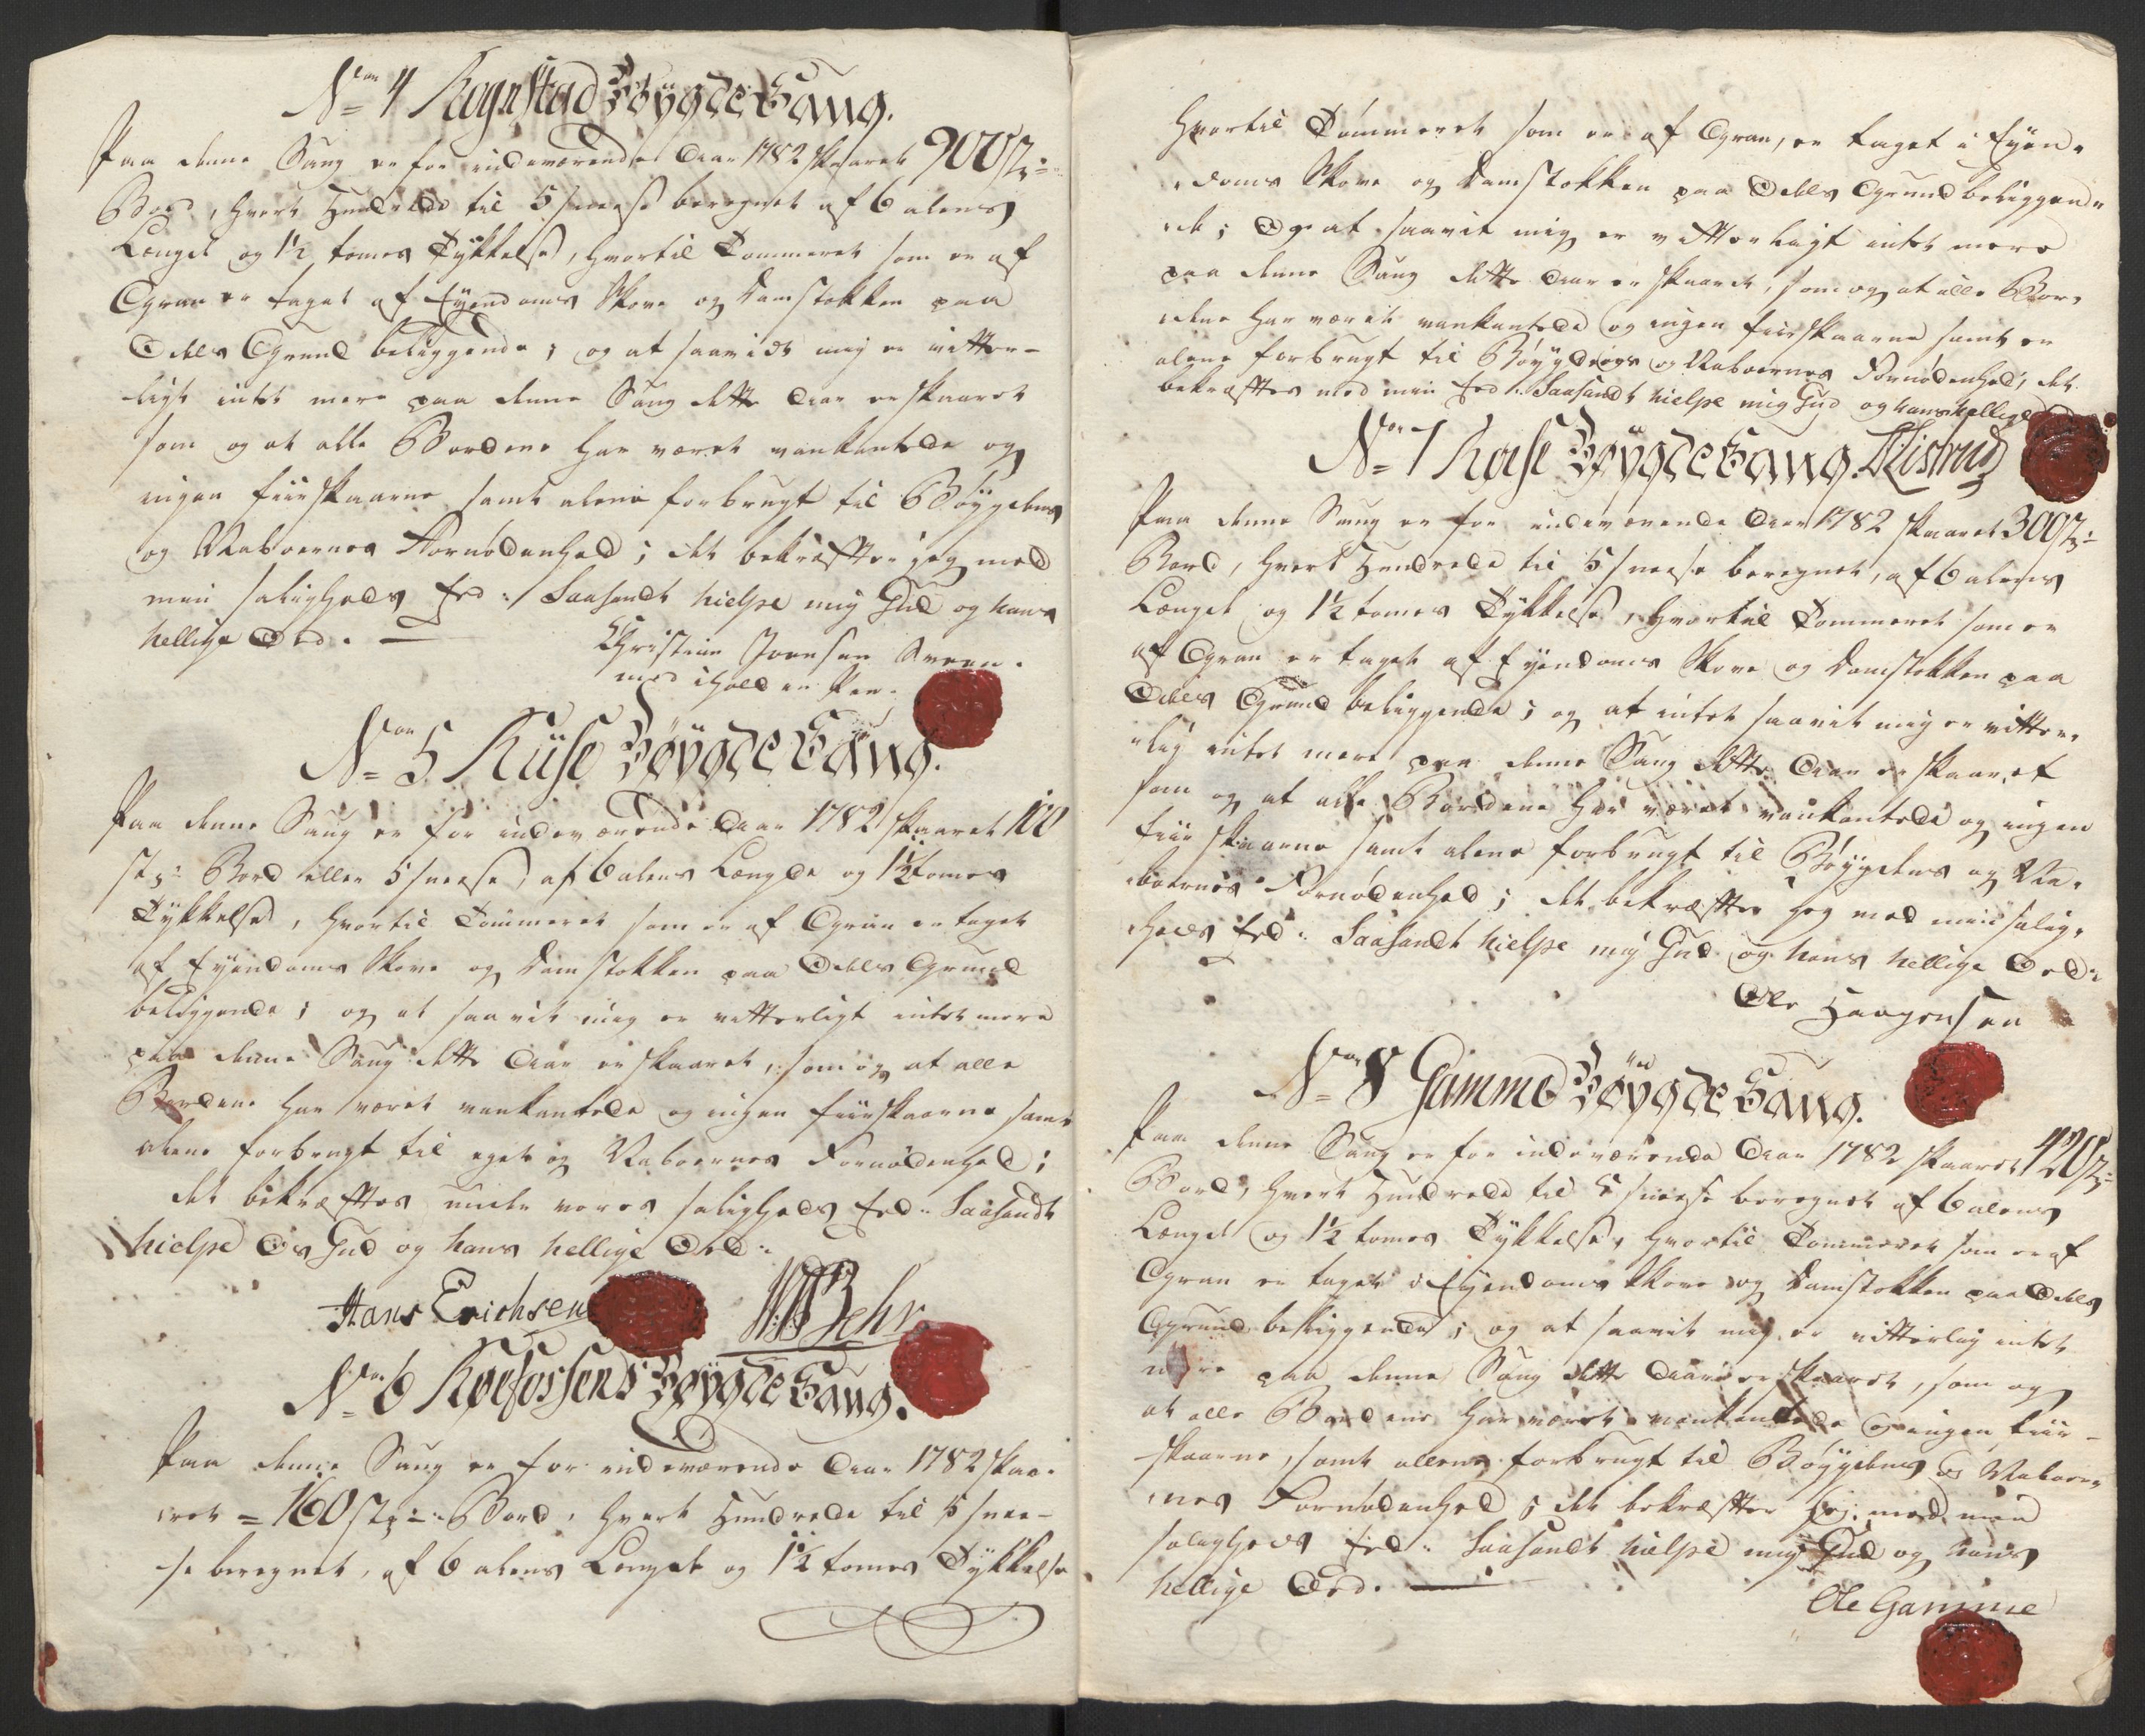 No 4 Rognstad Böygde Saug.
Paa denne Saug er for indeværende Aar 1782 skaaret 900 st:
Bord, hvert Hundrede til 5 sneese beregnet af 6 alens
Længde og 1½ tomes Tykkelse, hvortil Tømmeret som er af
Gran er taget af Eyendoms Skove og Damstokken paa
Odels Grund beliggende; og at saavidt mig er vitter-
ligt intet mere paa denne Saug dette Aar er skaaret
som og at alle Bordene har været vankantede og
ingen fiirskaarne samt alene forbrugt til Böygdens
og Naboernes Fornødenhed; det bekræfter jeg med
min saligheds Eed: Saasandt hielpe mig Gud og hans
hellige Ord.
Christian Svensen
med iholden Pen.
No 5 Kuse Böygde Saug.
Paa denne Saug er for indeværende Aar 1782 skaaret 100
st: Bord eller 5 sneese, af 6 alens Længde og 1½ tomes
Tykkelse, hvortil Tømmeret som er af Gran er taget
af Eyendoms Skove og Damstokken paa Odels Grund
beliggende; og at saavit mig er vitterligt intet mere
paa denne Saug dette Aar er skaaret, som og at alle
Bordene har været vankantede og ingen fiirskaarne samt
alene forbrugt til eget og Naboernes Fornødenhed;
det bekræftes under vores saligheds Eed: Saasandt
hielpe Os Gud og hans hellige Ord:
Hans Erichsen Behr
No 6 Koefossens Böygde Saug.
Paa denne Saug er for indeværende Aar 1782 skaa-
ret = 160 st: Bord, hvert Hundrede til 5 snee-
se beregnet, af 6 alens Længde og 1½ tomes Tykkelse
Hvortil Tømmeret som er af Gran, er taget i Eyen-
doms Skove og Damstokken paa Odels Grund beliggen-
de; Og at saavit mig er vitterligt intet mere
paa denne Saug dette Aar er skaaret, som og at alle Bor-
dene har været vankantede og ingen fiirskaarne samt er
alene forbrugt til Böygdens og Naboernes Fornødenhed, det
bekræftes med min Eed: Saasandt hielpe mig Gud og hans hellige
No 7 Kose Böygde Saug. Listrud
Paa denne Saug er for indeværende Aar 1782 skaaret 300 st:
Bord, hvert Hundrede til 5 sneese beregnet, af 6 alens
Længde og 1½ tomes Tykkelse, hvortil Tømmeret som er
af Gran er taget af Eyendoms Skove og Damstokken paa
Odels Grund beliggende; og at intet saavit mig er vitter-
lig intet mere paa denne Saug dette Aar er skaaret
som og at alle Bordene har været vankantede og ingen
fiirskaarne samt alene forbrugt til Böygdens og Na-
boernes Fornødenhed; det bekræfter jeg med min salig-
heds Eed: Saasandt hielpe mig Gud og hans hellige Ord:
Ole Haagensen
No 8 Gamme Böygde Saug.
Paa denne Saug er for indeværende Aar 1782 skaaret 420 st:
Bord, hvert Hundrede til 5 sneese beregnet af 6 alens
Længde og 1½ tomes Tykkelse, hvortil Tømmeret som er af
Gran er taget i Eyendoms Skove og Damstokken paa Odels
Grund beliggende; og at saavit mig er vitterlig intet
mere paa denne Saug dette Aar er skaaret, som og
at alle Bordene har været vankantede og ingen fiir-
skaarne, samt allene forbrugt til Böygdens og Naboer-
nes Fornødenhed; det bekræfter jeg med min
saligheds Eed: Saasandt hielpe mig Gud og hans
hellige Ord.
Ole Gamme